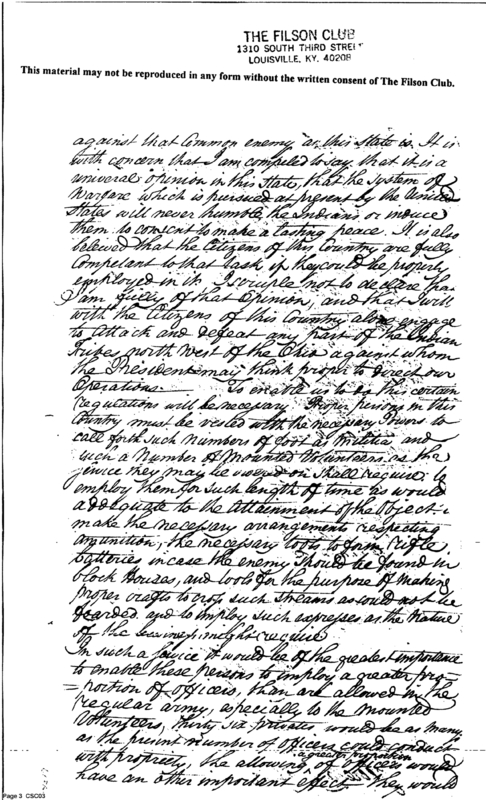 THE FILSON CLUB
1310 SOUTH THIRD STREET
LOUISVILLE, KY. 40208
This material may not be reproduced in any form without the written consent of The Filson Club.
against that Common enemy as this State is. It is
with concern that I am compeled to say that it is a
univeral opinion in this State, that the System of
Warfare which is pursued at present by the United
States will never humble the Indians or induce
them to consent to make a lasting peace. It is also
beleived that the Citizens of this Country are fully
Competant to that task if they could be properly
employed in it. I scruple not to declare that
I am fully of that Opinion, and that I will
with the Citizens of this Country alone engage
to Attack and defeat any part of the Indian
Tribes north West of the Ohio against whom
the President may think proper to direct our
Operations. To enable us to do this certain
regulations will be necessary. Proper persons in this
Country must be vested with the necessary Powers to
call forth such numbers of foot as Militia and
such a Number of Mounted Volunteers as the
service they may be on shall require to
employ them for such length of time as would
adequate to the attainment of the object
make the necessary arrangements respecting
amunition, the necessary tools to form rifle
batteries in case the enemy should be found in
block Houses, and tools for the purpose of making
proper crafts to cross such streams as could not be
foarded and to employ such expresses as the Nature
of the might require
In such a service it would be of the greatest importance
to enable these persons to employ a greater pro-
=portion of officers, than are allowed in the
regular army, especially to the mounted
Volunteers, thirty six privates would be as many
as the present number of officers could conduct
with propriety, the allowing a greater proportion of Officers would
have an other important effect they would
Page 3 CSC03